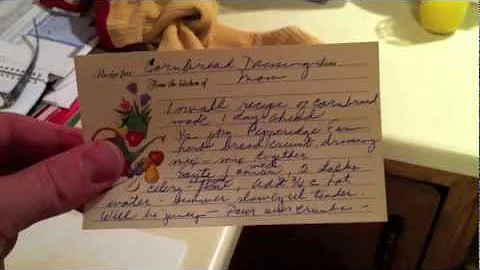 Recipe for: Cornbread Dressing
From the kitchen of Mom
1 small recipe of cornbread
made 1 day ahead
½ pkg Pepperidge Farm
bread crumb dressing
mix - mix together
Saute 1 onion, 2 stalks
celery, add ¾ c hot
water. Simmer slowly til tender.
Will be juicy - Pour over crumbs -